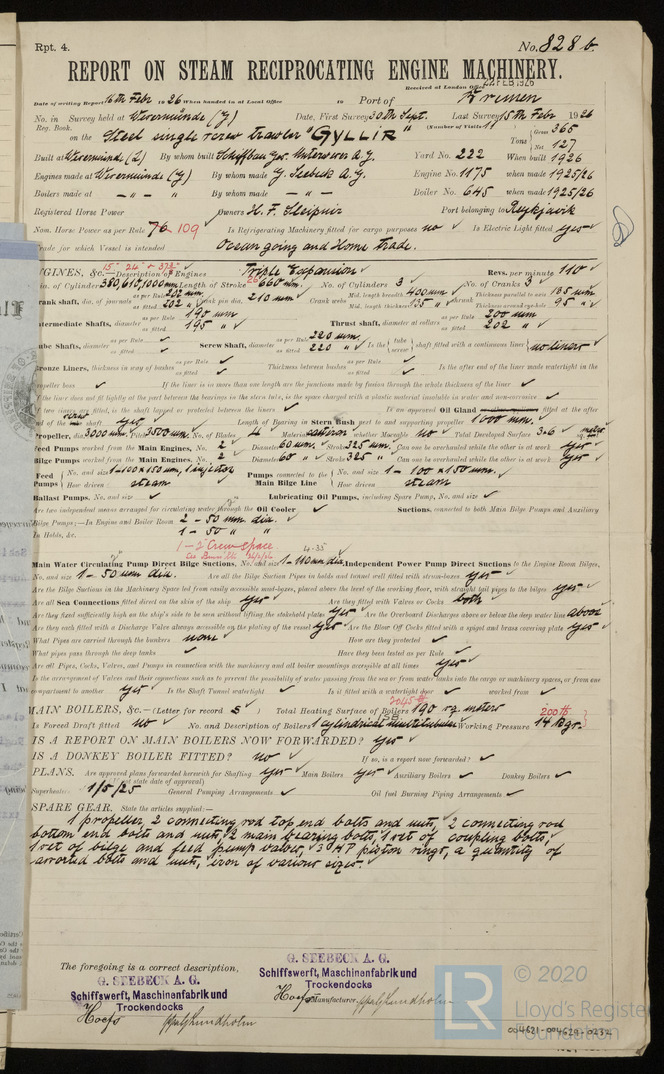 Rpt. 4.
No. 828 b.
REPORT ON STEAM RECIPROCATING ENGINE MACHINERY.
Received at London Office 22 FEB 1926
Date of writing Report 16th Feb 1926 When handed in at Local Office 19 Port of Bremen
No. in Survey held at Wesermünde (G) Date, First Survey 30th Sept. Last Survey 15th Feb 1926
Reg. Book. (Number of Visits 17)
on the Steel single screw trawler "GYLLIR" Tons Gross 365 Net 127
Built at Wesermünde (L) By whom built Schiffbau Ges. Unterweser A.G. Yard No. 222 When built 1926
Engines made at Wesermünde (G) By whom made G. Seebeck A.G. Engine No. 1175 when made 1925/26
Boilers made at — " — " By whom made — " — Boiler No. 645 when made 1925/26
Registered Horse Power Owners H.F. Sleipnir Port belonging to Reykjavik
Nom. Horse Power as per Rule 76 109 Is Refrigerating Machinery fitted for cargo purposes no Is Electric Light fitted yes
Trade for which Vessel is intended Ocean going and Home trade.
15" 24" + 37 3/8"
ENGINES, &c.—Description of Engines Triple Expansion Revs. per minute 110
Dia. of Cylinders 380,610,1000 mm Length of Stroke 26" 660 mm. No. of Cylinders 3 No. of Cranks 3
Crank shaft, dia. of journals as per Rule 202 mm as fitted 202 " Crank pin dia. 210 mm Crank webs Mid. length breadth 400 mm Mid. length thickness 135 " shrunk Thickness parallel to axis 135 mm Thickness around eye-hole 95 "
Intermediate Shafts, diameter as per Rule 190 mm as fitted 195 " Thrust shaft, diameter at collars as per Rule 200 mm as fitted 202 "
Tube Shafts, diameter as per Rule as fitted Screw Shaft, diameter as per Rule 220 mm. as fitted 220 " Is the tube screw shaft fitted with a continuous liner no liner
Bronze Liners, thickness in way of bushes as per Rule as fitted Thickness between bushes as per Rule as fitted Is the after end of the liner made watertight in the
propeller boss If the liner is in more than one length are the junctions made by fusion through the whole thickness of the liner
If the liner does not fit tightly at the part between the bearings in the stern tube, is the space charged with a plastic material insoluble in water and non-corrosive
If two liners are fitted, is the shaft lapped or protected between the liners If an approved Oil Gland fitted at the after
end of the screw shaft yes Length of Bearing in Stern Bush next to and supporting propeller 1000 mm.
Propeller, dia. 3000 mm. Pitch 3500 mm. No. of Blades 4 Material cast iron whether Moveable no Total Developed Surface 3.6 metre sq.
Feed Pumps worked from the Main Engines, No. 2 Diameter 60 mm. Stroke 325 mm. Can one be overhauled while the other is at work yes
Bilge Pumps worked from the Main Engines, No. 2 Diameter 60 " Stroke 325 " Can one be overhauled while the other is at work yes
Feed Pumps No. and size 1-100x150 mm, 1 injector How driven steam Pumps connected to the Main Bilge Line No. and size 1 - 100 x 150 mm. How driven steam
Ballast Pumps, No. and size Lubricating Oil Pumps, including Spare Pump, No. and size
Are two independent means arranged for circulating water through the Oil Cooler Suctions, connected to both Main Bilge Pumps and Auxiliary
Bilge Pumps;—In Engine and Boiler Room 2 - 50 mm. dia. 2"
In Holds, &c. 1 - 50 " "
1 - 2" Crew space
Main Water Circulating Pump Direct Bilge Suctions, No. and size 1-110 mm dia. 4.35 Independent Power Pump Direct Suctions to the Engine Room Bilges,
No. and size 1 - 50 mm dia. 2" Are all the Bilge Suction Pipes in holds and tunnel well fitted with strum-boxes yes
Are the Bilge Suctions in the Machinery Space led from easily accessible mud-boxes, placed above the level of the working floor, with straight tail pipes to the bilges yes
Are all Sea Connections fitted direct on the skin of the ship yes Are they fitted with Valves or Cocks both
Are they fixed sufficiently high on the ship's side to be seen without lifting the stokehold plates yes Are the Overboard Discharges above or below the deep water line above
Are they each fitted with a Discharge Valve always accessible on the plating of the vessel yes Are the Blow Off Cocks fitted with a spigot and brass covering plate yes
What Pipes are carried through the bunkers none How are they protected
What pipes pass through the deep tanks Have they been tested as per Rule
Are all Pipes, Cocks, Valves, and Pumps in connection with the machinery and all boiler mountings accessible at all times yes
Is the arrangement of Valves and their connections such as to prevent the possibility of water passing from the sea or from water tanks into the cargo or machinery spaces, or from one
compartment to another yes Is the Shaft Tunnel watertight Is it fitted with a watertight door worked from
MAIN BOILERS, &c.—(Letter for record S) Total Heating Surface of Boilers 2045 190 sq. meters 200 lb
Is Forced Draft fitted no No. and Description of Boilers 1 cylindrical multitubular Working Pressure 14 kgr.
IS A REPORT ON MAIN BOILERS NOW FORWARDED? yes
IS A DONKEY BOILER FITTED? no If so, is a report now forwarded?
PLANS. Are approved plans forwarded herewith for Shafting yes Main Boilers yes Auxiliary Boilers Donkey Boilers
(If not state date of approval)
Superheaters 1/5/25 General Pumping Arrangements Oil fuel Burning Piping Arrangements
SPARE GEAR. State the articles supplied:—
1 propeller, 2 connecting rod top end bolts and nuts, 2 connecting rod
bottom end bolts and nuts, 2 main bearing bolts, 1 set of coupling bolts,
1 set of bilge and feed pump valves, 3 HP piston rings, a quantity of
assorted bolts and nuts, iron of various sizes.
The foregoing is a correct description,
G. SEEBECK A. G.
Schiffswerft, Maschinenfabrik und
Trockendocks
G. SEEBECK A. G.
Schiffswerft, Maschinenfabrik und
Trockendocks
Manufacturer.
LR © 2020
Lloyd's Register
Foundation
004621-004629-0232